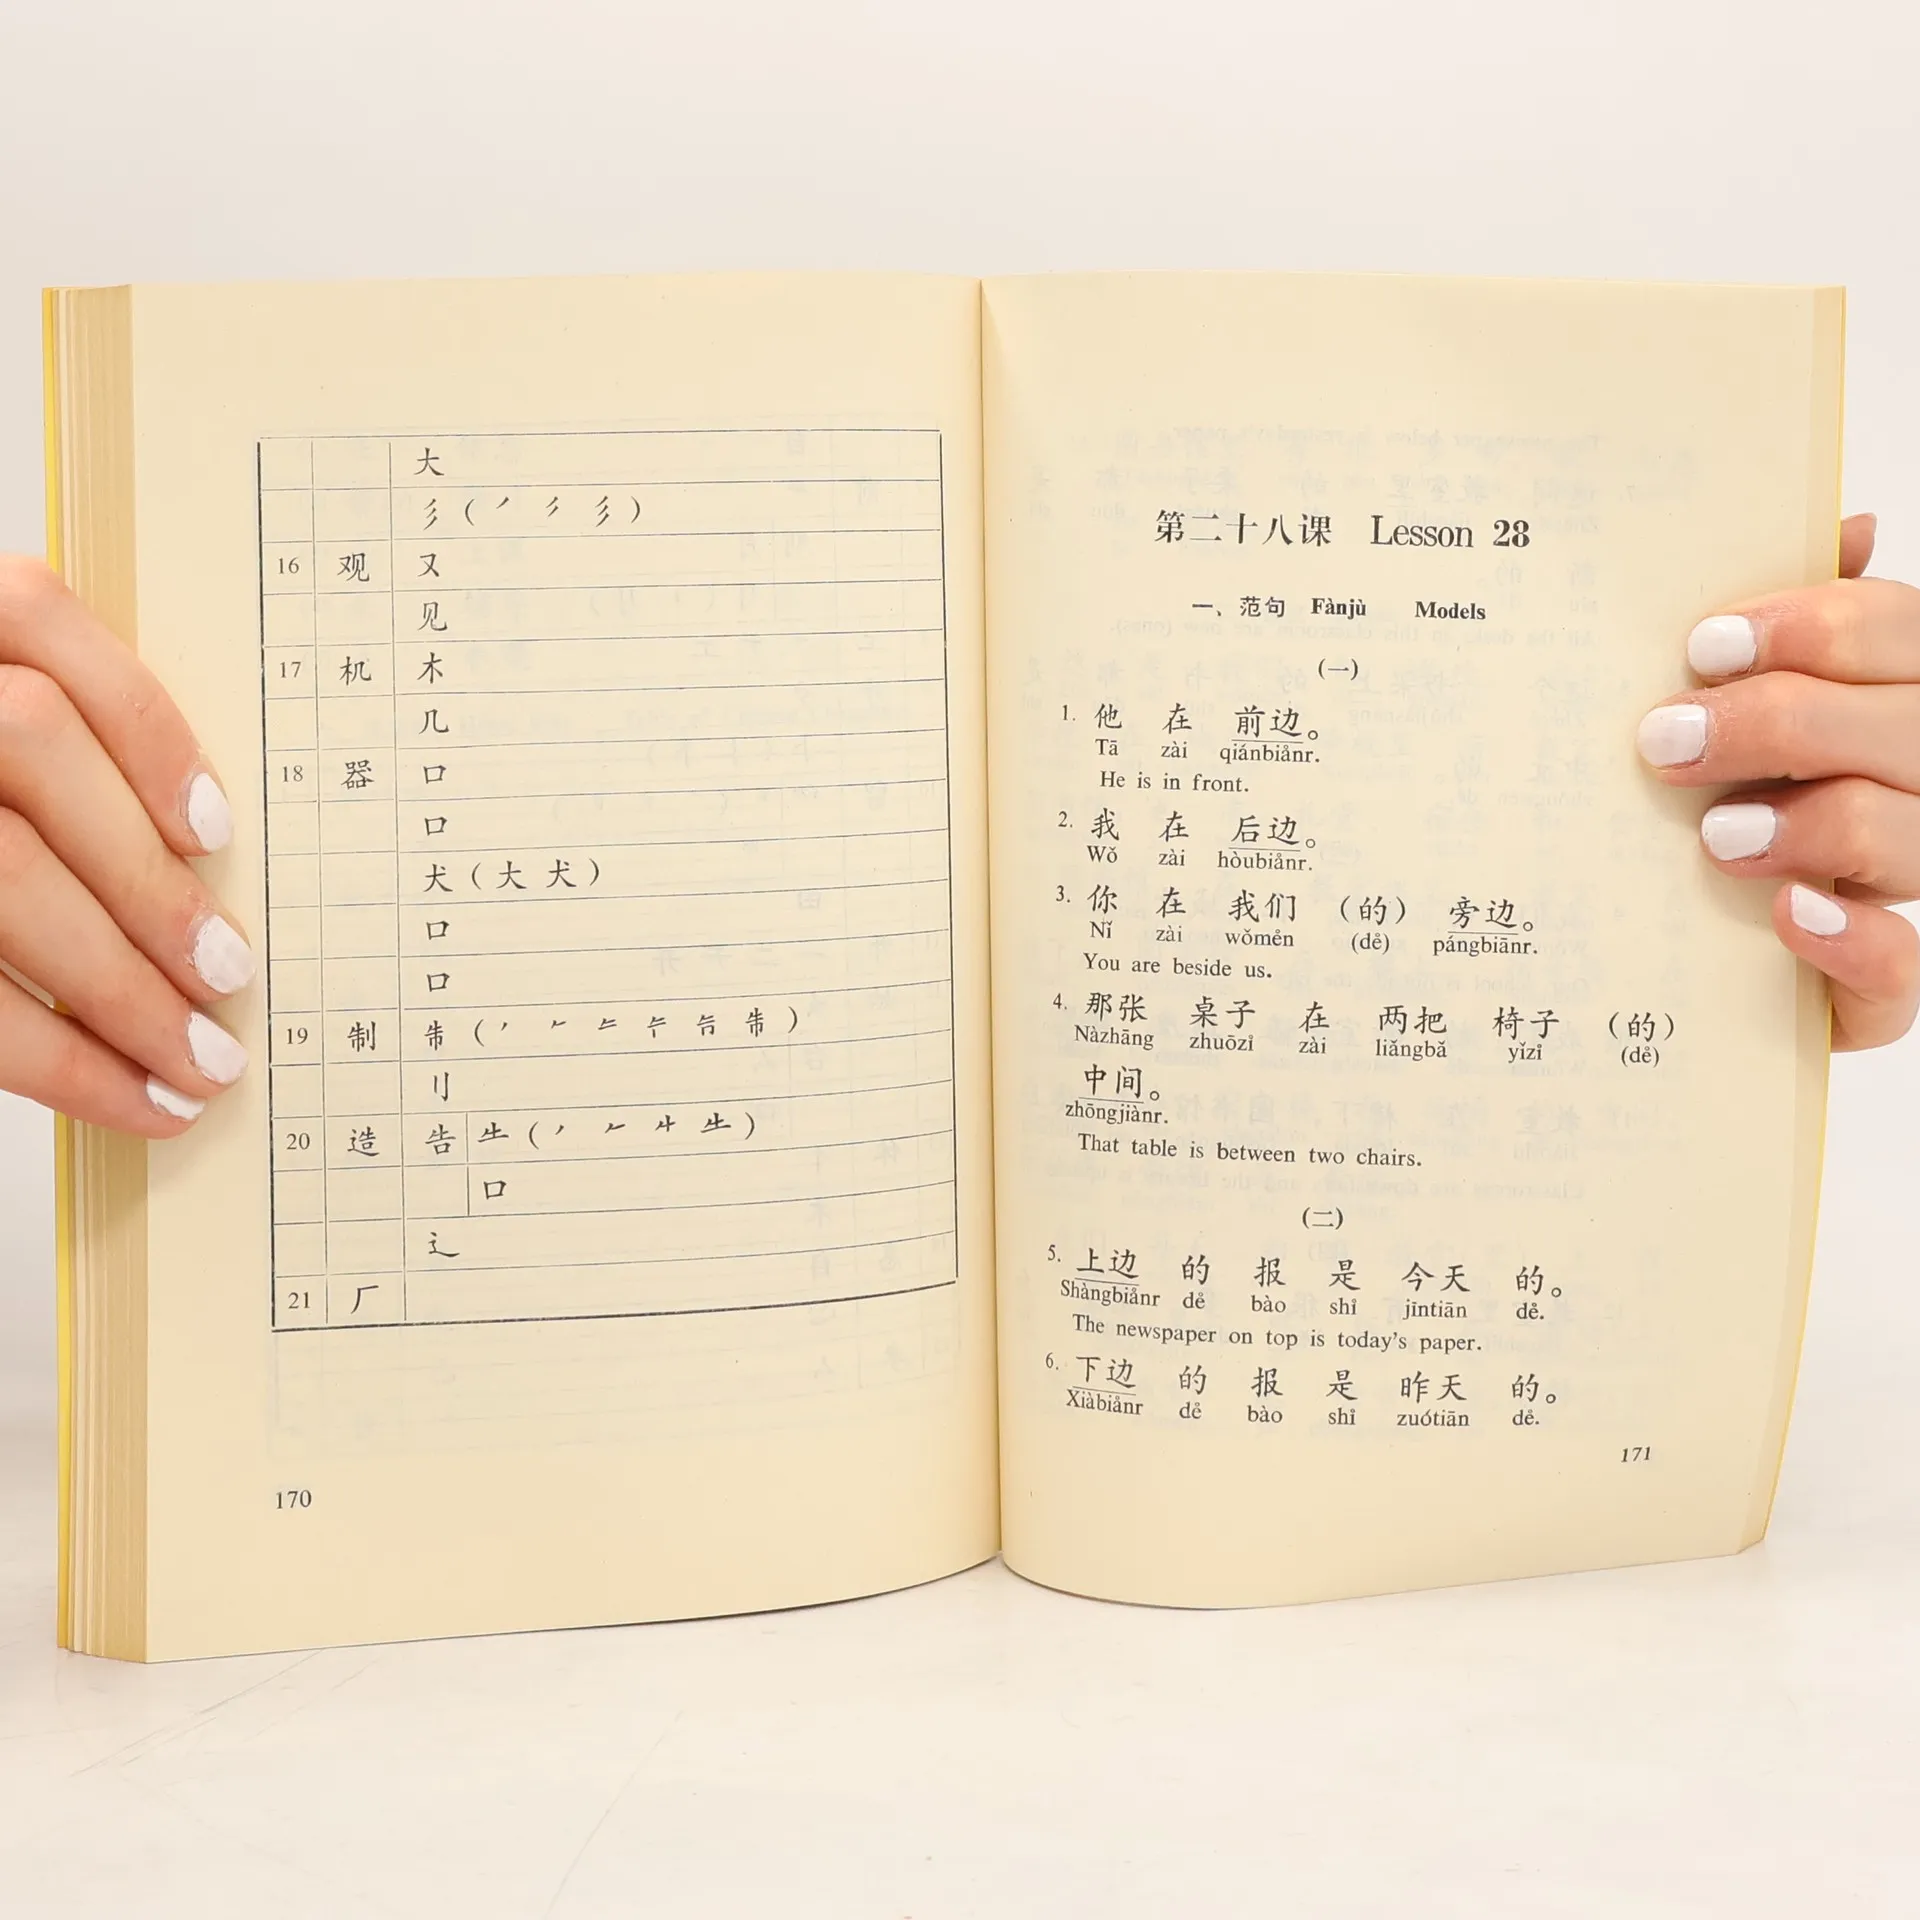 大
彡(㇒ 彡)
16 观 又
见
17 机 木
几
18 器 口
口
犬(大 犬)
口
口
19 制
刂
20 造 告
口
辶
21 厂
170
第二十八课 Lesson 28
一、范句 Fànjù Models
(一)
1. 他 在 前边。
Tā zài qiánbiånr.
He is in front.
2. 我 在 后边。
Wǒ zài hòubiånr.
3. 你 在 我们 (的) 旁边。
Nǐ zài wǒmen̊ (de̊) pángbiānr.
You are beside us.
4. 那张 桌子 在 两把 椅子 (的)
Nàzhāng zhuōzi̊ zài liǎngbǎ yǐzi̊ (de̊)
中间。
zhōngjiànr.
That table is between two chairs.
(二)
5. 上边 的 报 是 今天 的。
Shàngbiånr de̊ bào shi̊ jīntiān de̊.
The newspaper on top is today's paper.
6. 下边 的 报 是 昨天 的。
Xiàbiånr de̊ bào shi̊ zuótiān de̊.
171